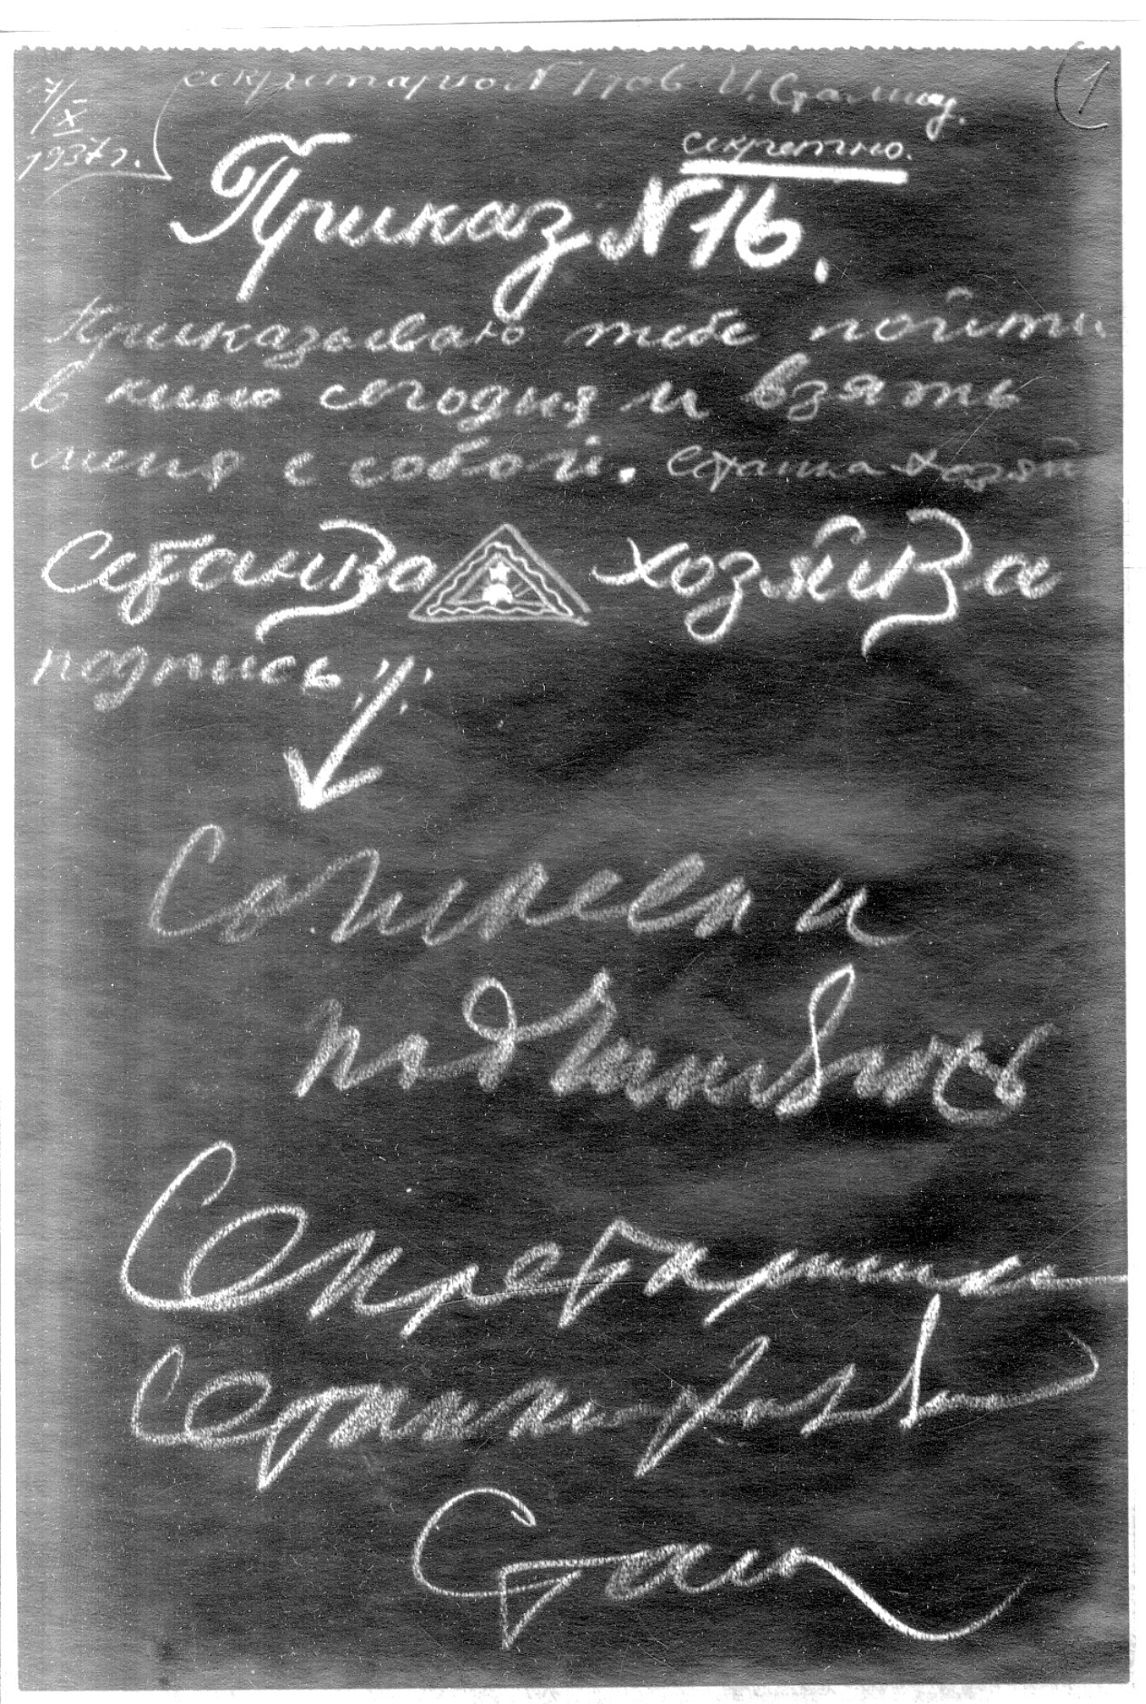 17/X 1937г. секретарю N 1 тов. И. Сталину. 1
секретно.
Приказ N 16.
Приказываю тебе пойти
в кино сегодня и взять
меня с собой. Сетанка хозяй
Сетанка хозяйка
подпись
Согласен и
подчиняюсь
Секретаришка
Сетанки-хозяйки
Стал